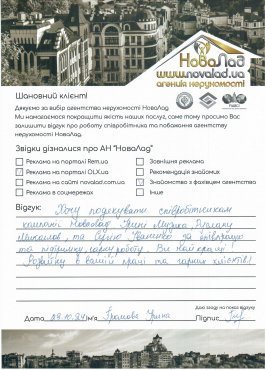 НоваЛад
www.novalad.ua
агенція нерухомості
Шановний клієнт!
Дякуємо за вибір агентства нерухомості НоваЛад
Ми намагаємося покращити якість наших послуг, саме тому просимо Вас
залишити відгук про роботу співробітника та побажання агентству
нерухомості НоваЛад.
Звідки дізналися про АН "НоваЛад"
Реклама на порталі Rem.ua
Зовнішня реклама
Реклама на порталі OLX.ua
Рекомендація знайомих
Реклама на сайті novalad.com.ua
Знайомство з фахівцем агентства
Реклама в соцмережах
Інше
Відгук: Хочу подякувати співробітникам
компанії НоваЛад Ірині
та Сергію Іваненко за співпрацю
та підтримку, гарну роботу. Ви найкращі!
Розвитку в вашій праці та гарних клієнтів!
Дата 09.10.24 Ім'я Громова Ірина Підпис
Даю згоду на показ відгуку